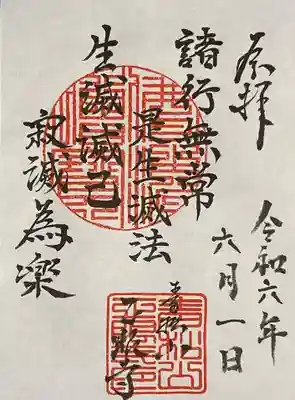 奉拝
令和六年
六月一日
諸行無常
是生滅法
生滅滅己
寂滅為楽